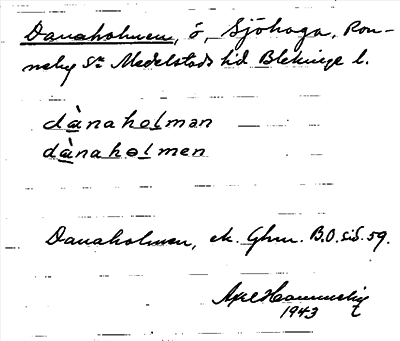 Danaholmen, ö, Sjöhaga, Ron-
neby Sn Medelstads hd Blekinge l.
dànahol̲man
dànahəl̲men
Danaholmen, ek. Ghm. B.O.s.S. 59.
Axel
1943